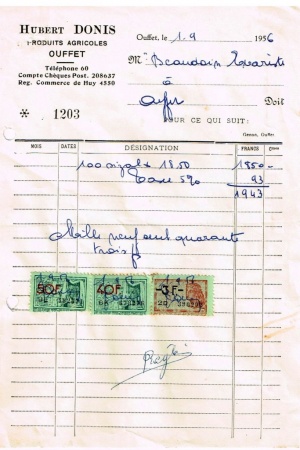 HUBERT DONIS
PRODUITS AGRICOLES
OUFFET
Téléphone 60
Compte Chèques Post. 208637
Reg. Commerce de Huy 4550
Ouffet, le 1-9 1956
M
à
Doit
* 1203
POUR CE QUI SUIT:
Genon, Ouffet
MOIS DATES DÉSIGNATION FRANCS Cmes
100 1850 1850-
Taxe 5% 93
1943
Mille neuf cent quarante
trois f
50F 40F -3F-